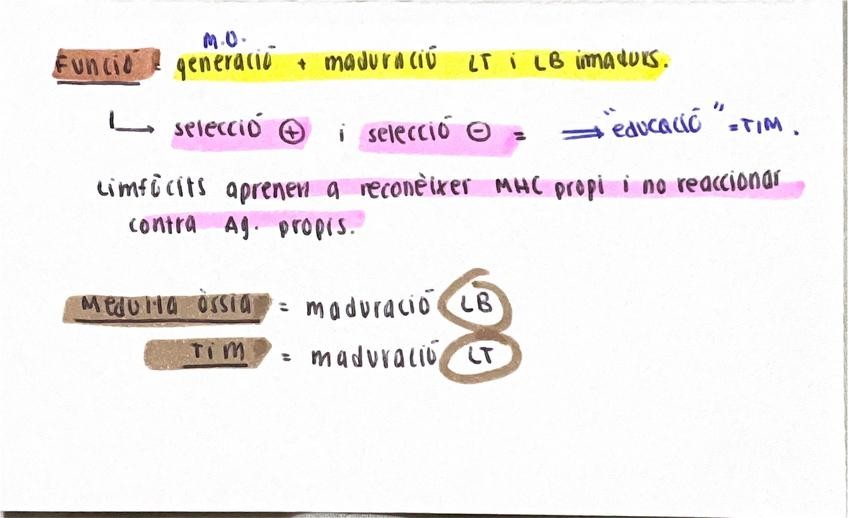 M.O.
Funció = generació + maduració LT i LB immadurs.
↳ selecció ⊕ i selecció ⊖ = ⇒ "educació" = TIM.
Limfòcits aprenen a reconèixer MHC propi i no reaccionar
contra Ag. propis.
Medul·la òssia = maduració LB
TIM = maduració LT